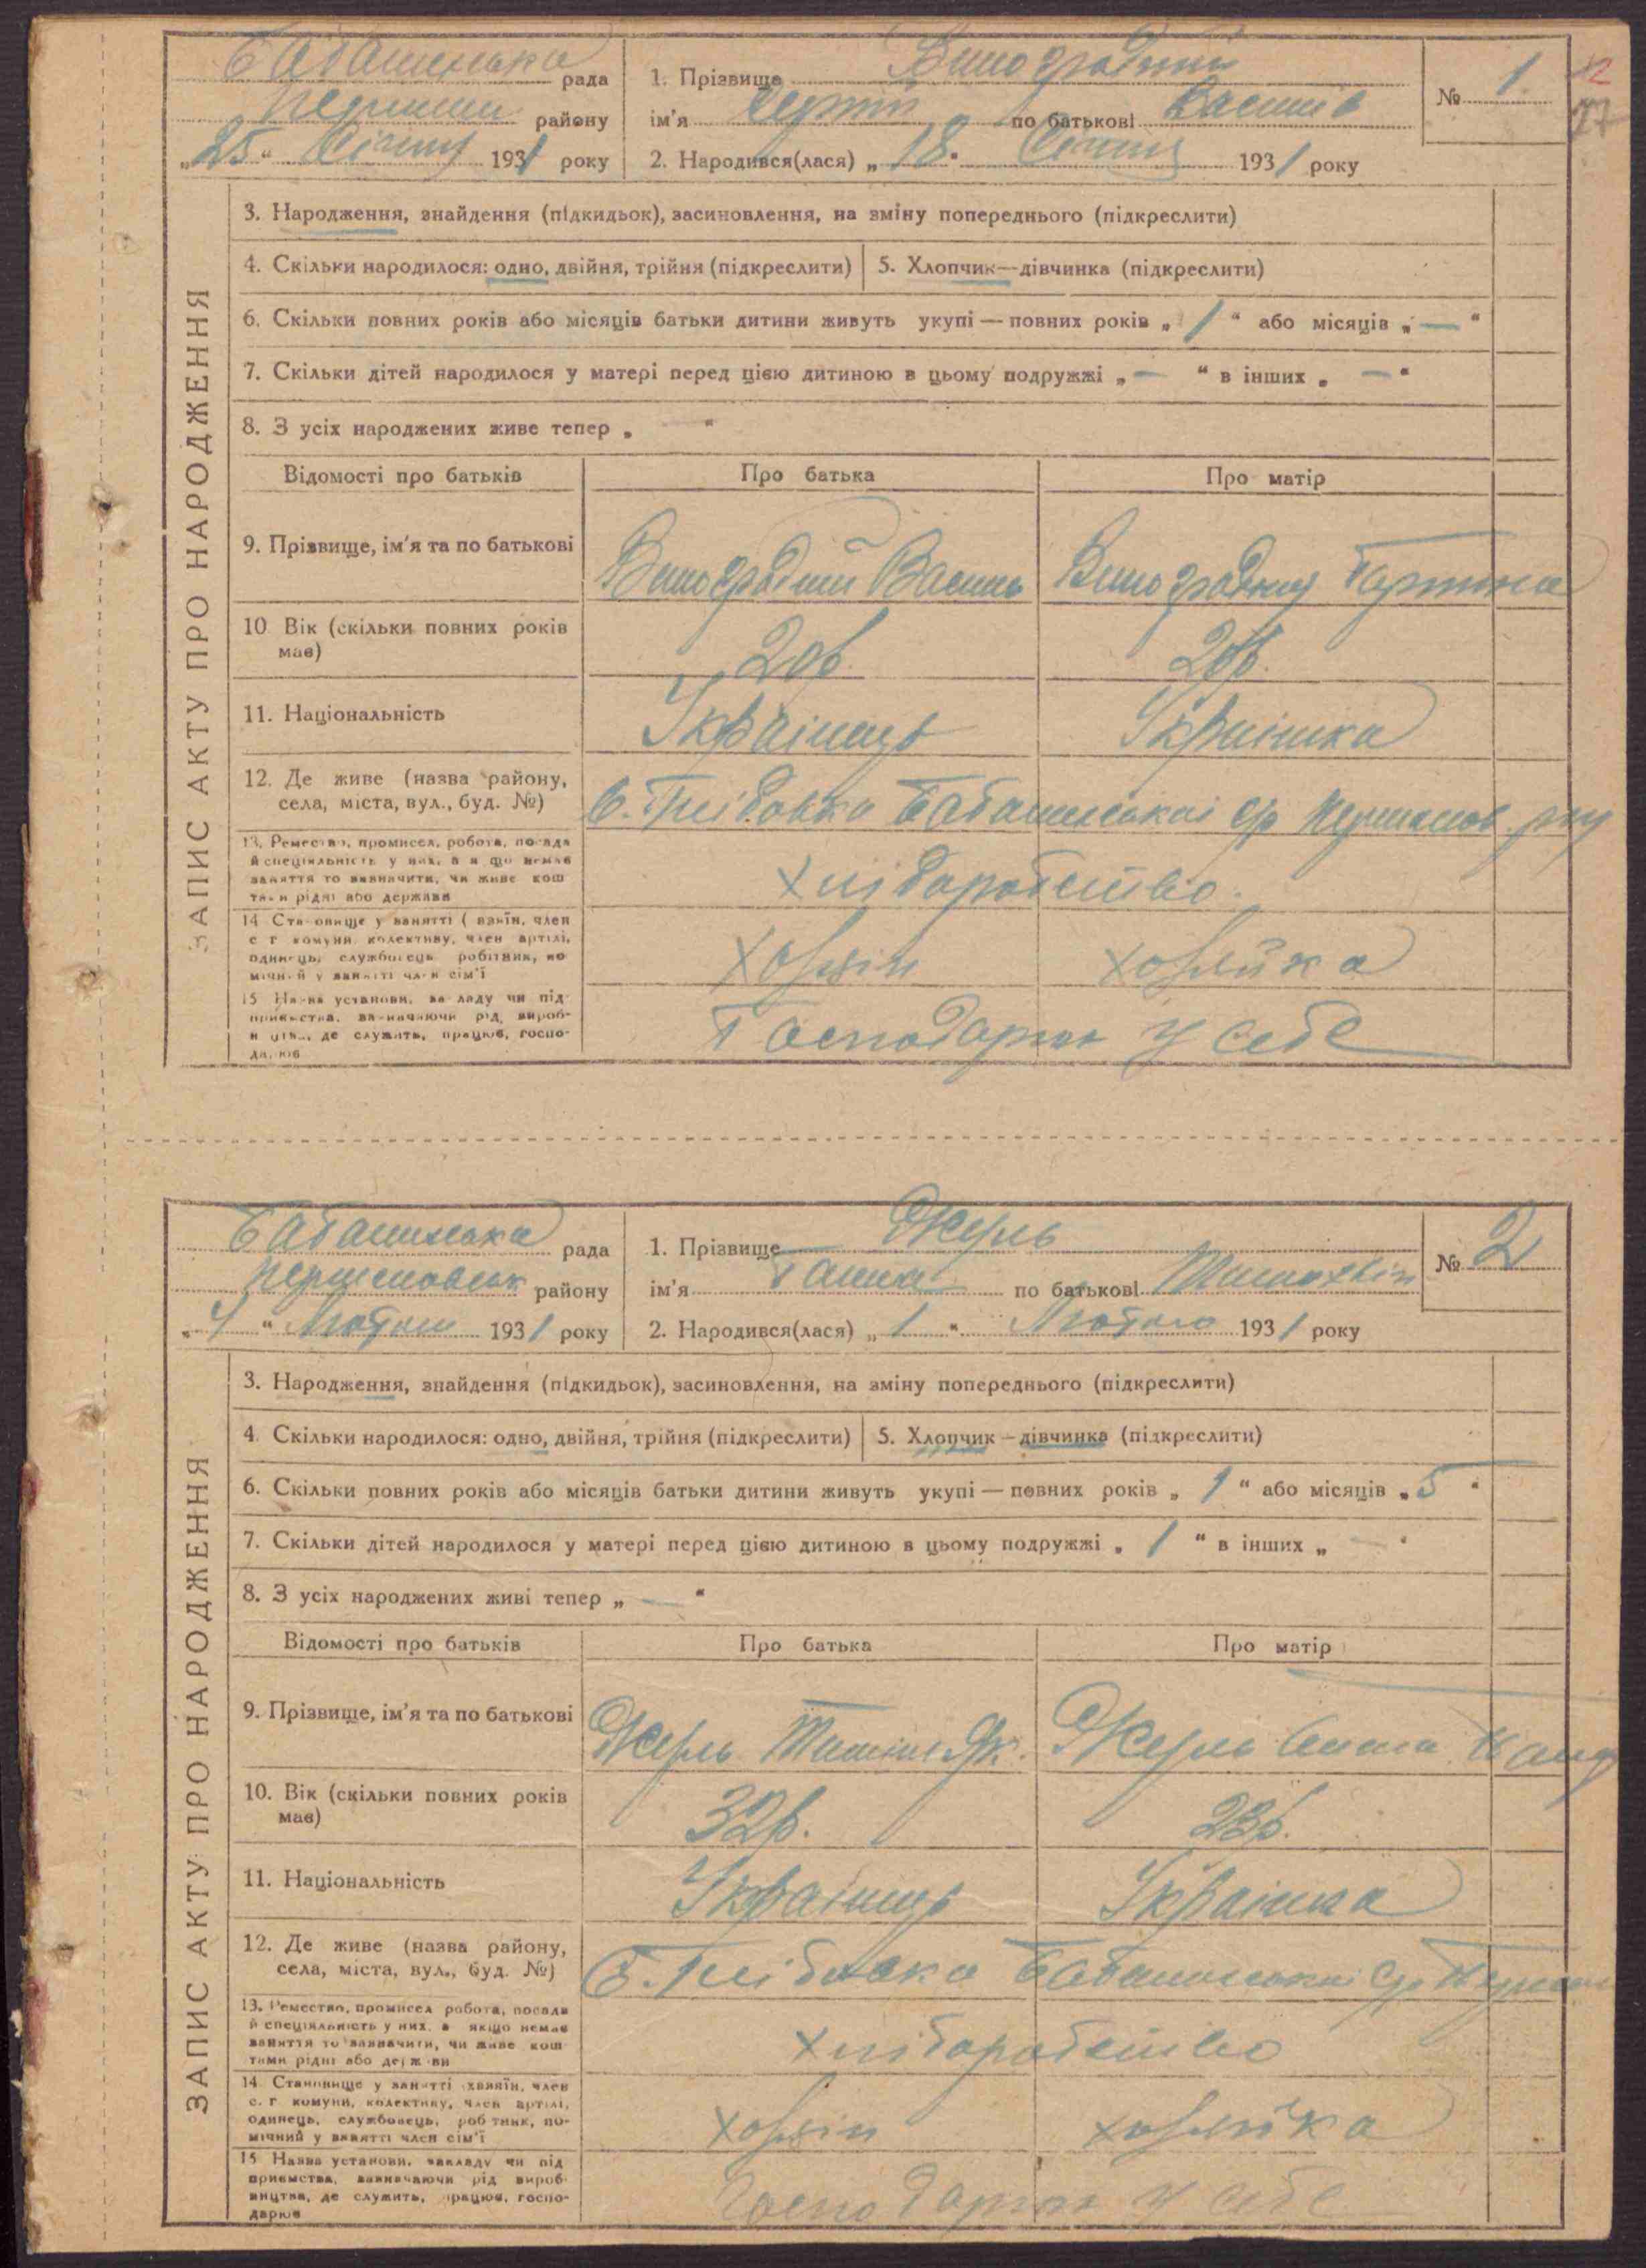 Бабашинська рада
району
„25“ Січня 1931 року
1. Прізвище Виноградний
ім'я Сергій по батькові Василів
2. Народився(лася) „18“ Січня 1931 року
№ 1
12
17
ЗАПИС АКТУ ПРО НАРОДЖЕННЯ
3. Народження, знайдення (підкидьок), засиновлення, на зміну попереднього (підкреслити)
4. Скільки народилося: одно, двійня, трійня (підкреслити)
5. Хлопчик—дівчинка (підкреслити)
6. Скільки повних років або місяців батьки дитини живуть укупі — повних років „1“ або місяців „—“
7. Скільки дітей народилося у матері перед цією дитиною в цьому подружжі „—“ в інших „—“
8. З усіх народжених живе тепер „ “
Відомості про батьків Про батька Про матір
9. Прізвище, ім'я та по батькові Виноградний Василь Виноградна
10 Вік (скільки повних років
має) 20р. 20р.
11. Національність Українець Українка
12. Де живе (назва району,
села, міста, вул., буд. №) с. Глібовка Бабашинської с/р
13. Ремество, промисел, робота, посада
й спеціяльність у них, а якщо немає
заняття то визначити, чи живе кош
тами рідні або держави
Хліборобство.
14 Становище у занятті (хазяїн, член
с. г комуни, колективу, член артілі,
одинець, службовець, робітник, по
мічний у занятті член сім'ї
хозяїн хозяйка
15 Назва установи, закладу чи під
приємства, зазначаючи рід вироб-
ництва, де служить, працює, госпо-
дарює
Господарює у себе
Бабашинська рада
району
„4“ Лютого 1931 року
1. Прізвище
ім'я Ганна по батькові
2. Народився(лася) „1“ Лютого 1931 року
№ 2
ЗАПИС АКТУ ПРО НАРОДЖЕННЯ
3. Народження, знайдення (підкидьок), засиновлення, на зміну попереднього (підкреслити)
4. Скільки народилося: одно, двійня, трійня (підкреслити)
5. Хлопчик — дівчинка (підкреслити)
6. Скільки повних років або місяців батьки дитини живуть укупі — повних років „1“ або місяців „5“
7. Скільки дітей народилося у матері перед цією дитиною в цьому подружжі „1“ в інших „—“
8. З усіх народжених живі тепер „—“
Відомості про батьків Про батька Про матір
9. Прізвище, ім'я та по батькові
10. Вік (скільки повних років
має) 32р. 23р.
11. Національність Українець Українка
12. Де живе (назва району,
села, міста, вул., буд. №) с. Глібовка Бабашинської с/р
13. Ремество, промисел робота, посада
й спеціяльність у них. а якщо немає
заняття то зазначити, чи живе кош
тами рідні або держави
Хліборобство
14. Становище у занятті (хазяїн, член
с. г комуни, колективу, член артілі,
одинець, службовець, робітник, по-
мічний у занятті член сім'ї
хозяїн хозяйка
15 Назва установи, закладу чи під
приємства, зазначаючи рід вироб-
ництва, де служить, працює, госпо-
дарює
Господарює у себе